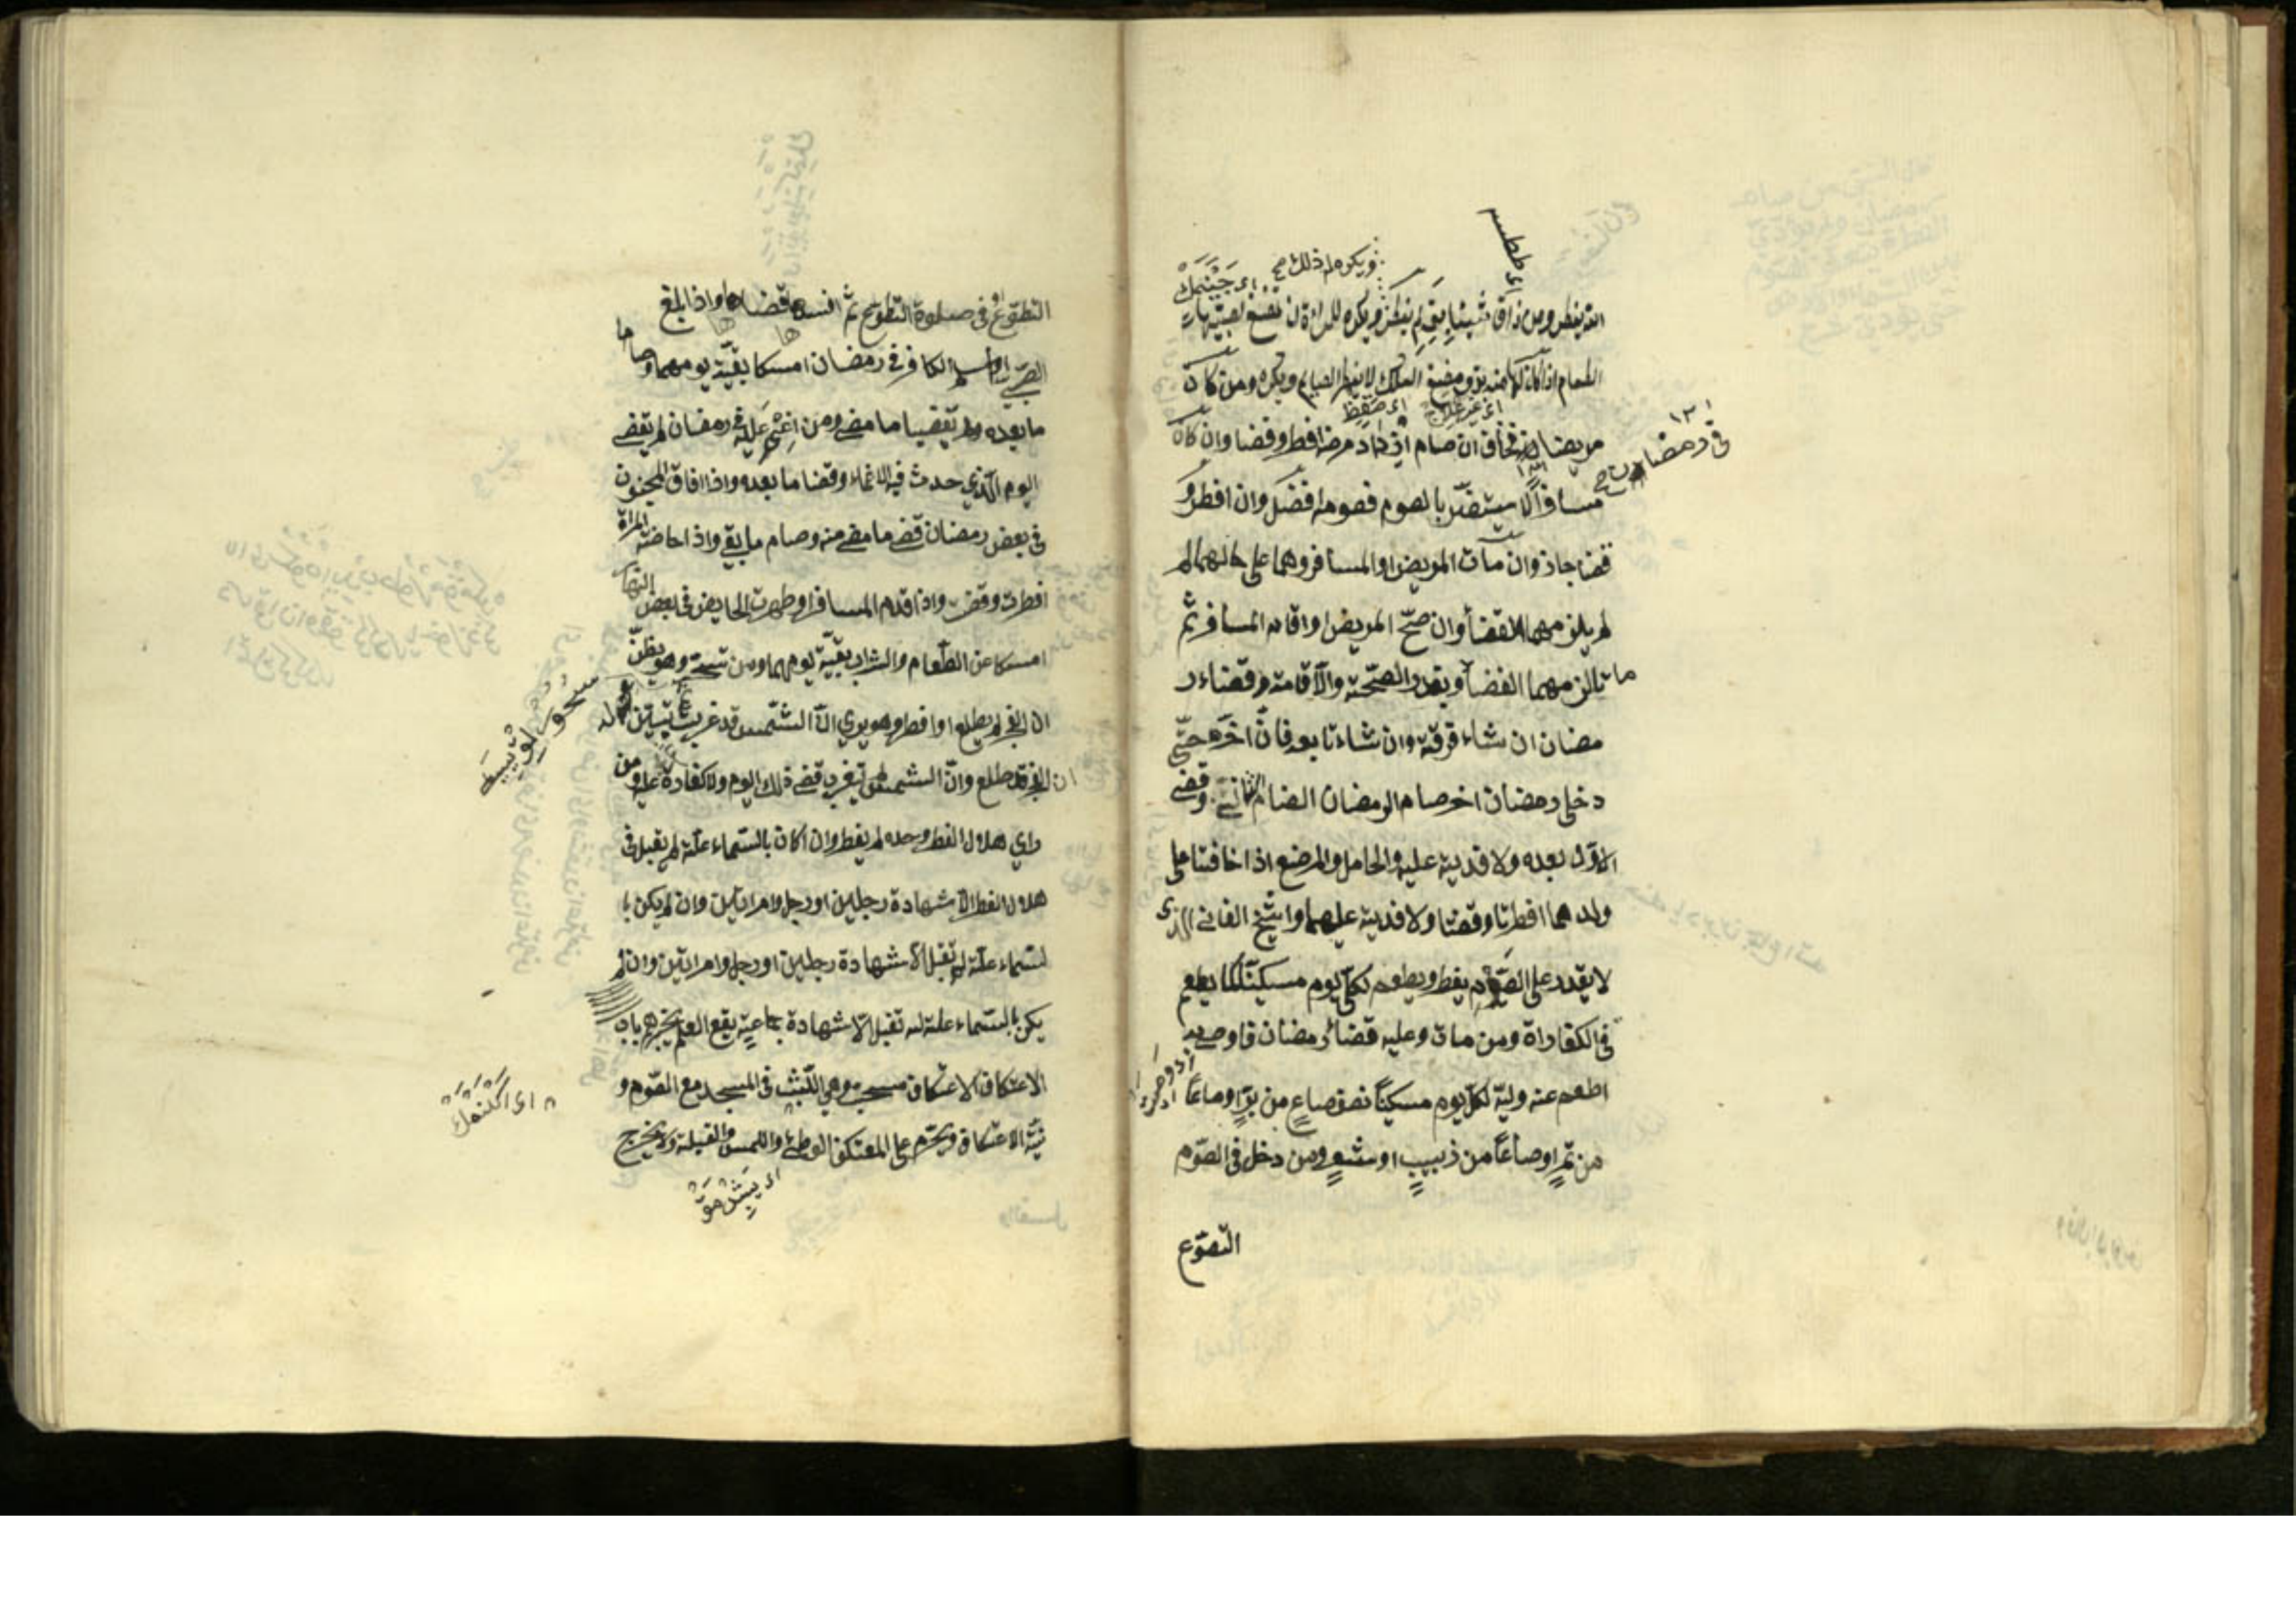 ويكره له ذلك صح
انه يفطر ومن ذاق شيئا لم يفطر ويكره للمراة ان تمضغ لصبيها
الطعام اذا كان لها منه بد ومضغ العلك لا يفطر الصايم ويكره ومن كان
مريضا في رمضان فخاف ان صام ازداد مرضه افطر وقضا وان كان
مسافراً لا يستضرّ بالصوم فصومه افضل وان افطر و
قضا جاز وان مات المريض او المسافر وهما على حالهما لم
لم يلزمهما القضأ وان صحّ المريض او اقام المسافر ثم
ماتا لزمهما القضأ وبقدر الصّحّة والاقامة وقضاء ر
مضان ان شاء فرقه وان شاء تابعه فان اخّره حتّى
دخل رمضان اخر صام الرمضان الثاني وقضى
الاوّل بعده ولا فدية عليه والحامل والمرضع اذا خافتا على
ولدهما افطرتا وقضتا ولا فدية عليهما والشيخ الفاني الذى
لا يقدر على الصّوم يفطر ويطعم لكلّ يوم مسكيناً كما يطعم
في الكفاراة ومن مات وعليه قضاء رمضان فاوصى به
اطعم عنه وليّه لكلّ يوم مسكيناً نصف صاعٍ من برٍّ او صاعاً
من تمرٍ او صاعاً من زبيبٍ او شعيرٍ ومن دخل في الصّوم
التطوّع
التطوّع او في صلوة التطوّع ثمّ افسدها قضاها واذا بلغ
الصّبيّ او اسلم الكافر في رمضان امسكا بقيّة يومهما وصاما
ما بعده ولم يقضيا ما مضى ومن اغمي عليه في رمضان لم يقضى
اليوم الّذي حدث فيه الاغماء وقضا ما بعده واذا افاق المجنون
في بعض رمضان قضى ما مضى منه وصام ما بقى واذا حاضة المراة
افطرت وقضت واذا قدم المسافر او طهرت الحايض في بعض النهار
امسكا عن الطّعام والشراب بقيّة يومهما ومن تسحر وهو يظنّ
ان الفجر لم يطلع او افطر وهو يرى انّ الشّمس قد غربت ثم تبيّن له
ان الفجر قد طلع وانّ الشمس لم تغرب قضى ذلك اليوم ولا كفارة عليه ومن
راي هلال الفطر وحده لم يفطر وان كان بالسّماء علّة لم يقبل في
هلال الفطر الا شهادة رجلين او رجل وامراتين وان لم يكن با
لسّماء علّة لم تقبل الا شهادة رجلين او رجل وامراتين وان لم
يكن بالسّماء علة لم تقبل الا شهادة جماعةٍ يقع العلم بخبرهم باب
الاعتكاف الاعتكاف مستحب وهي اللّبث في المسجد مع الصّوم و
نيّة الاعتكاف ويحرّم على المعتكف الوطئ واللمس والقبلة ولا يخرج